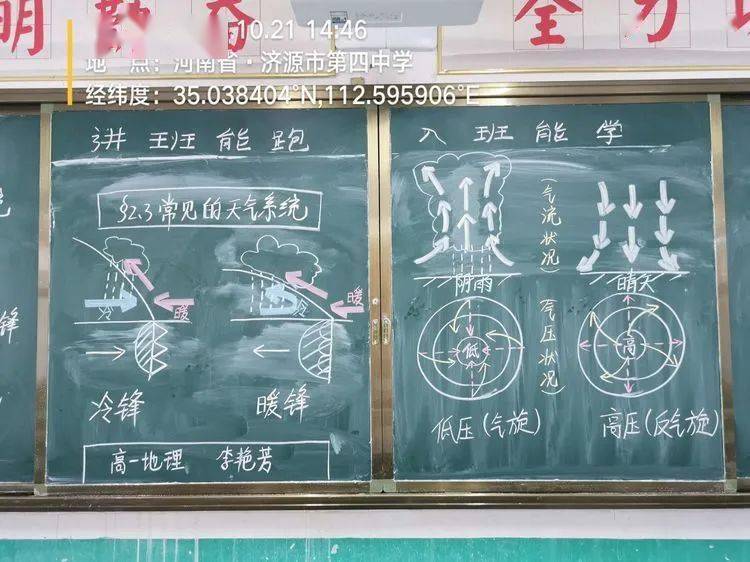 10.21 14:46
地 点：河南省·济源市第四中学
经纬度：35.038404°N,112.595906°E
讲 班 能 跑
§2.3常见的天气系统
冷
暖
冷
暖
冷锋
暖锋
高一地理 李艳芳
入 班 能 学
（气流状况）
阴雨
晴天
（气压状况）
低
高
低压（气旋）
高压（反气旋）
锋